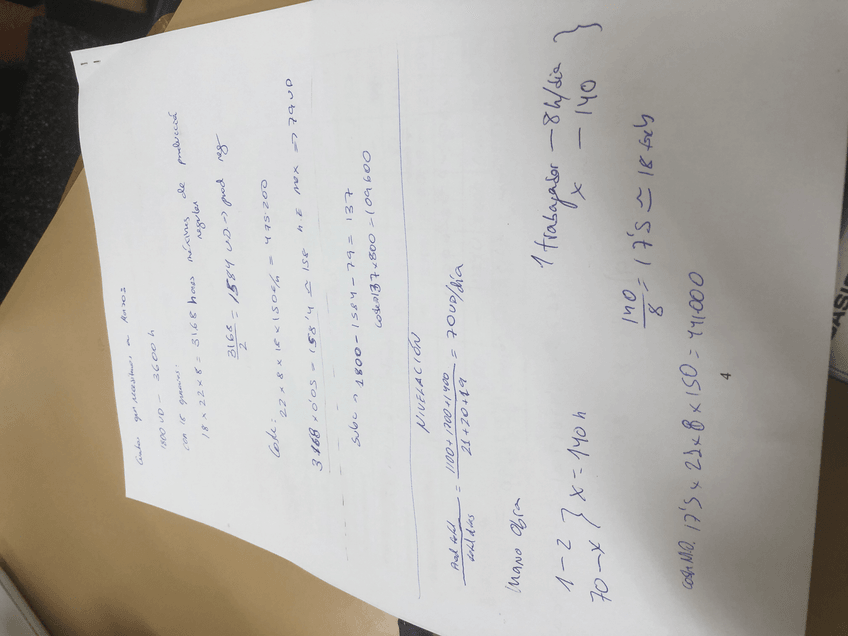 Cuantas que necesitamos en Marzo?
1800 UD - 3600 h
con 18 operarios:
18 x 22 x 8 = 3168 horas máximas de producció
regular
3168/2 = 1584 UD -> prod reg
Coste:
22 x 8 x 18 x 150€/h = 475200
3168 x 0'05 = 158'4 ≃ 158 h.E max => 79 UD
Subc = 1800 - 1584 - 79 = 137
coste 137 x 800 = 109600
NIVELACIÓN
Prod total/total dias = 1100 + 1700 + 1400/21 + 20 + 19 = 70 UD/dia
MANO Obra
1 - 2
70 - x } x = 140 h
1 trabajador - 8h/dia
x - 140 }
140/8 = 17'5 ≃ 18 trab
coste MO. 17'5 x 21 x 8 x 150 = 441000
4